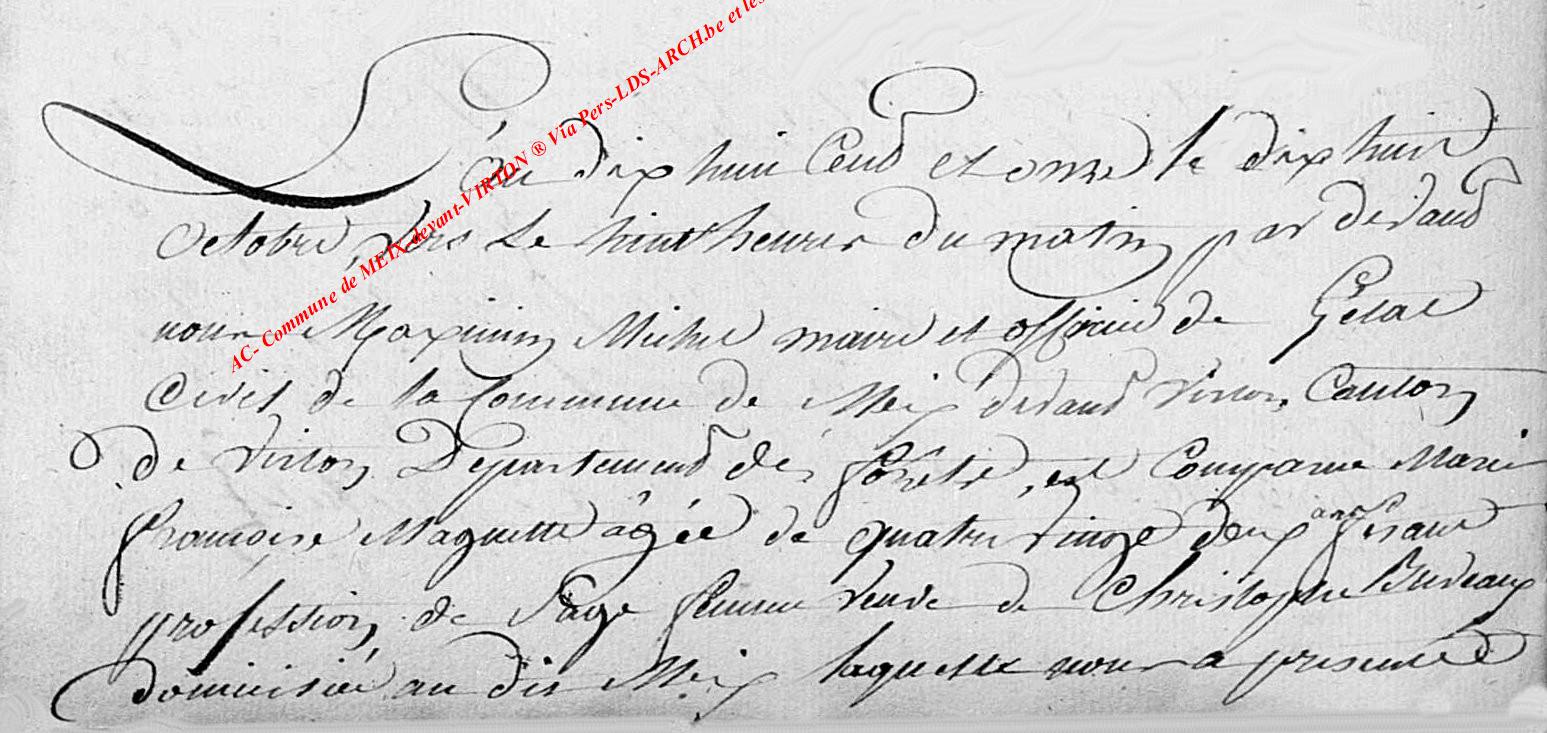 AC- Commune de MEIX-devant-VIRTON ® Via Pers-LDS-ARCH.be et les
L'an dix huit Cend et onze le dix huit
octobre, vers le huit heures du matin par devand
nous Maximin Michel maire et officier de L'etat
Civil de la Commune de Meix devand Virton, Canton
de Virton Departemend des forêts, est Comparue Marie
françoise Maquette âgée de quatre vingt deux ans fesant
profession de Sage femme veuve de Christophe Buveaux
domiciliée au dit Meix laquelle nous a presenté